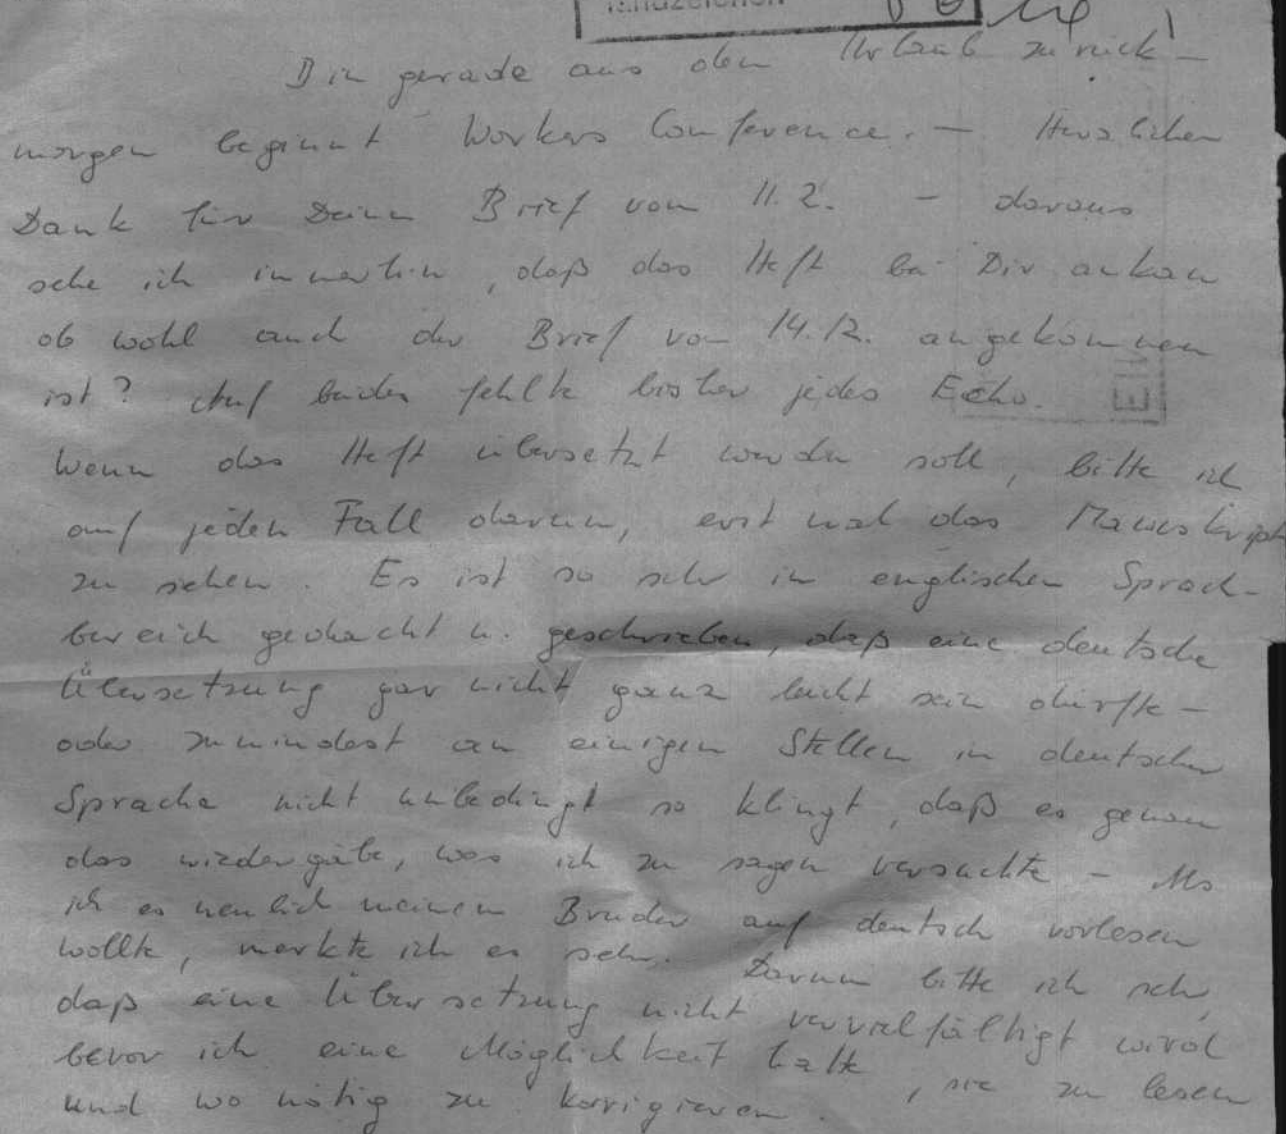 Handzeichen
Bin gerade aus dem Urlaub zurück –
morgen beginnt Workers Conference. – Herzlichen
Dank für Deinen Brief vom 11.2. – daraus
sehe ich immerhin, daß das Heft bei Dir ankam
ob wohl auch der Brief vom 14.12. angekommen
ist? Auf beides fehlte bisher jedes Echo.
EIN
Wenn das Heft übersetzt werden soll, bitte ich
auf jeden Fall darum, erst mal das Manuskript
zu sehen. Es ist so sehr im englischen Sprach-
bereich gedacht u. geschrieben, daß eine deutsche
Übersetzung gar nicht ganz leicht sein dürfte –
oder zumindest an einigen Stellen in deutscher
Sprache nicht unbedingt so klingt, daß es genau
das wiedergäbe, was ich zu sagen versuchte – Als
ich es neulich meinem Bruder auf deutsch vorlesen
wollte, merkte ich es sehr. Darum bitte ich sehr,
daß eine Übersetzung nicht vervielfältigt wird
bevor ich eine Möglichkeit hatte, sie zu lesen
und wo nötig zu korrigieren.